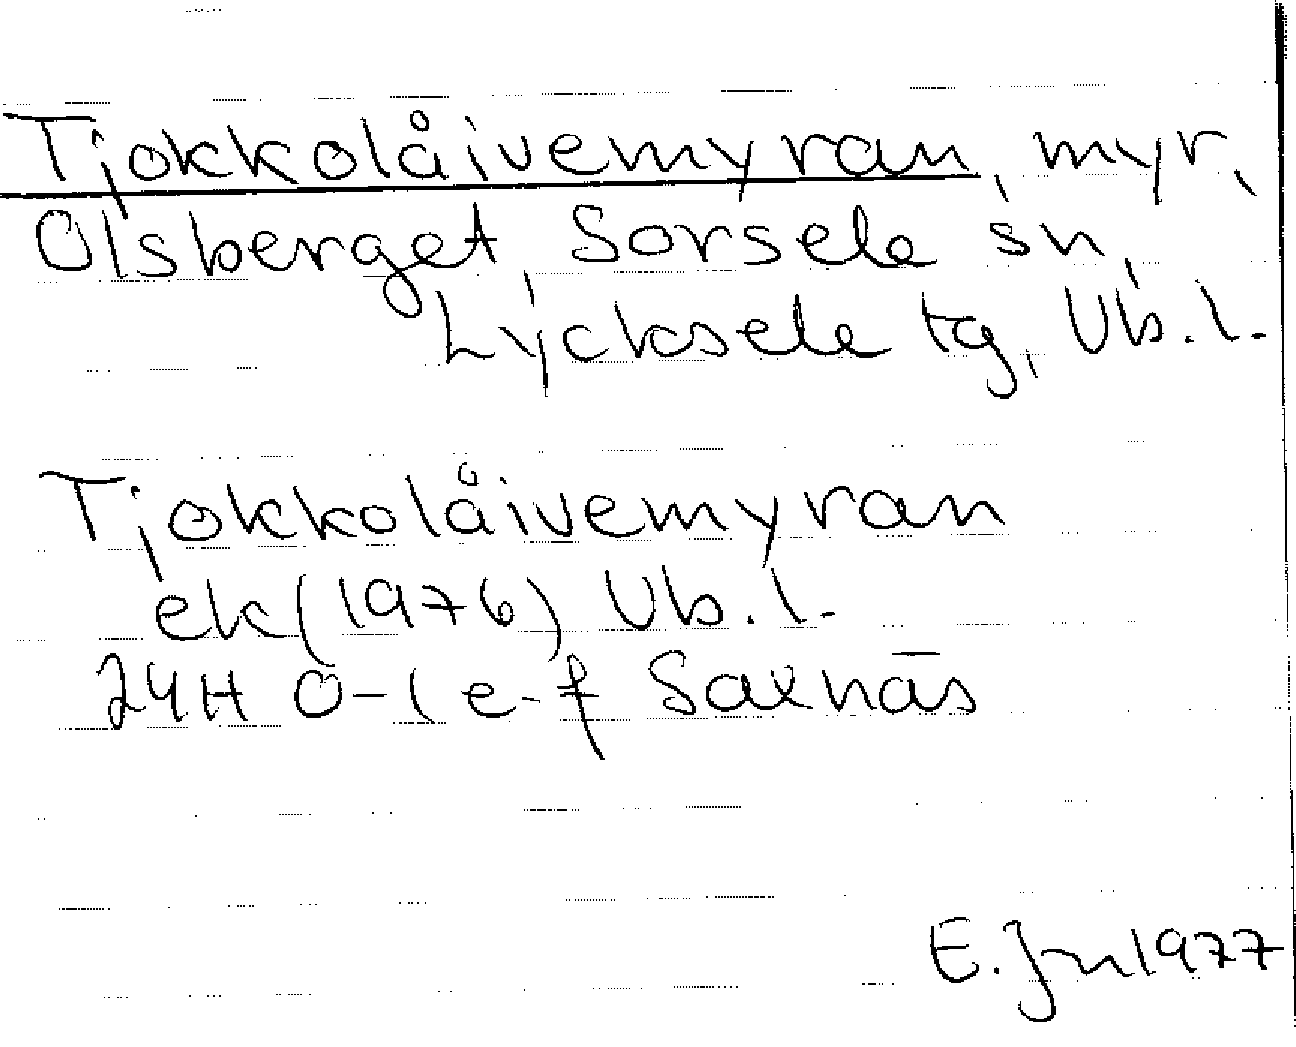 Tjokkolåivemyran, myr,
Olsberget, Sorsele sn,
Lycksele tg, Vb.l.
Tjokkolåivemyran
ek (1976) Vb.l.
24H 0-1 e-f Saxnäs
E. Jn 1977